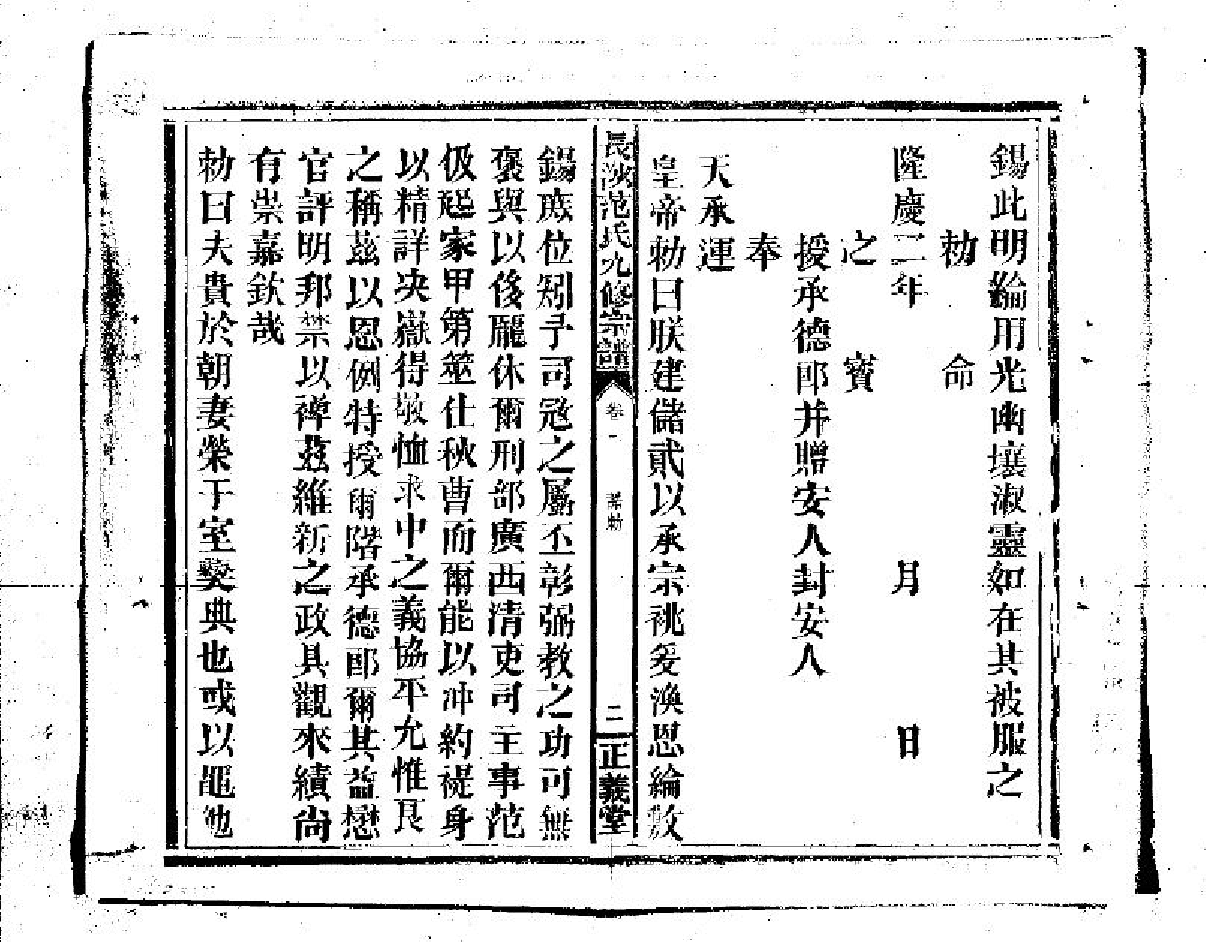 錫此明綸用光幽壤淑靈如在其被服之
勅命
隆慶二年 月 日
之寶
授承德郎并贈安人封安人
奉
天承運
皇帝勅曰朕建儲貳以承宗祧爰渙恩綸敷
長沙范氏九修宗譜 卷一 誥勅 二 正義堂
錫庶位矧予司寇之屬丕彰弼教之功可無
褒與以後龎休爾刑部廣西清吏司主事范
伋起家甲第筮仕秋曹而爾能以冲約褆身
以精詳决嶽得敬恤求中之義協平允惟良
之稱茲以恩例特授爾階承德郎爾其益懋
官評明邦禁以裨茲維新之政具觀來績尚
有崇嘉欽哉
勅曰夫貴於朝妻榮于室褻典也或以黽勉